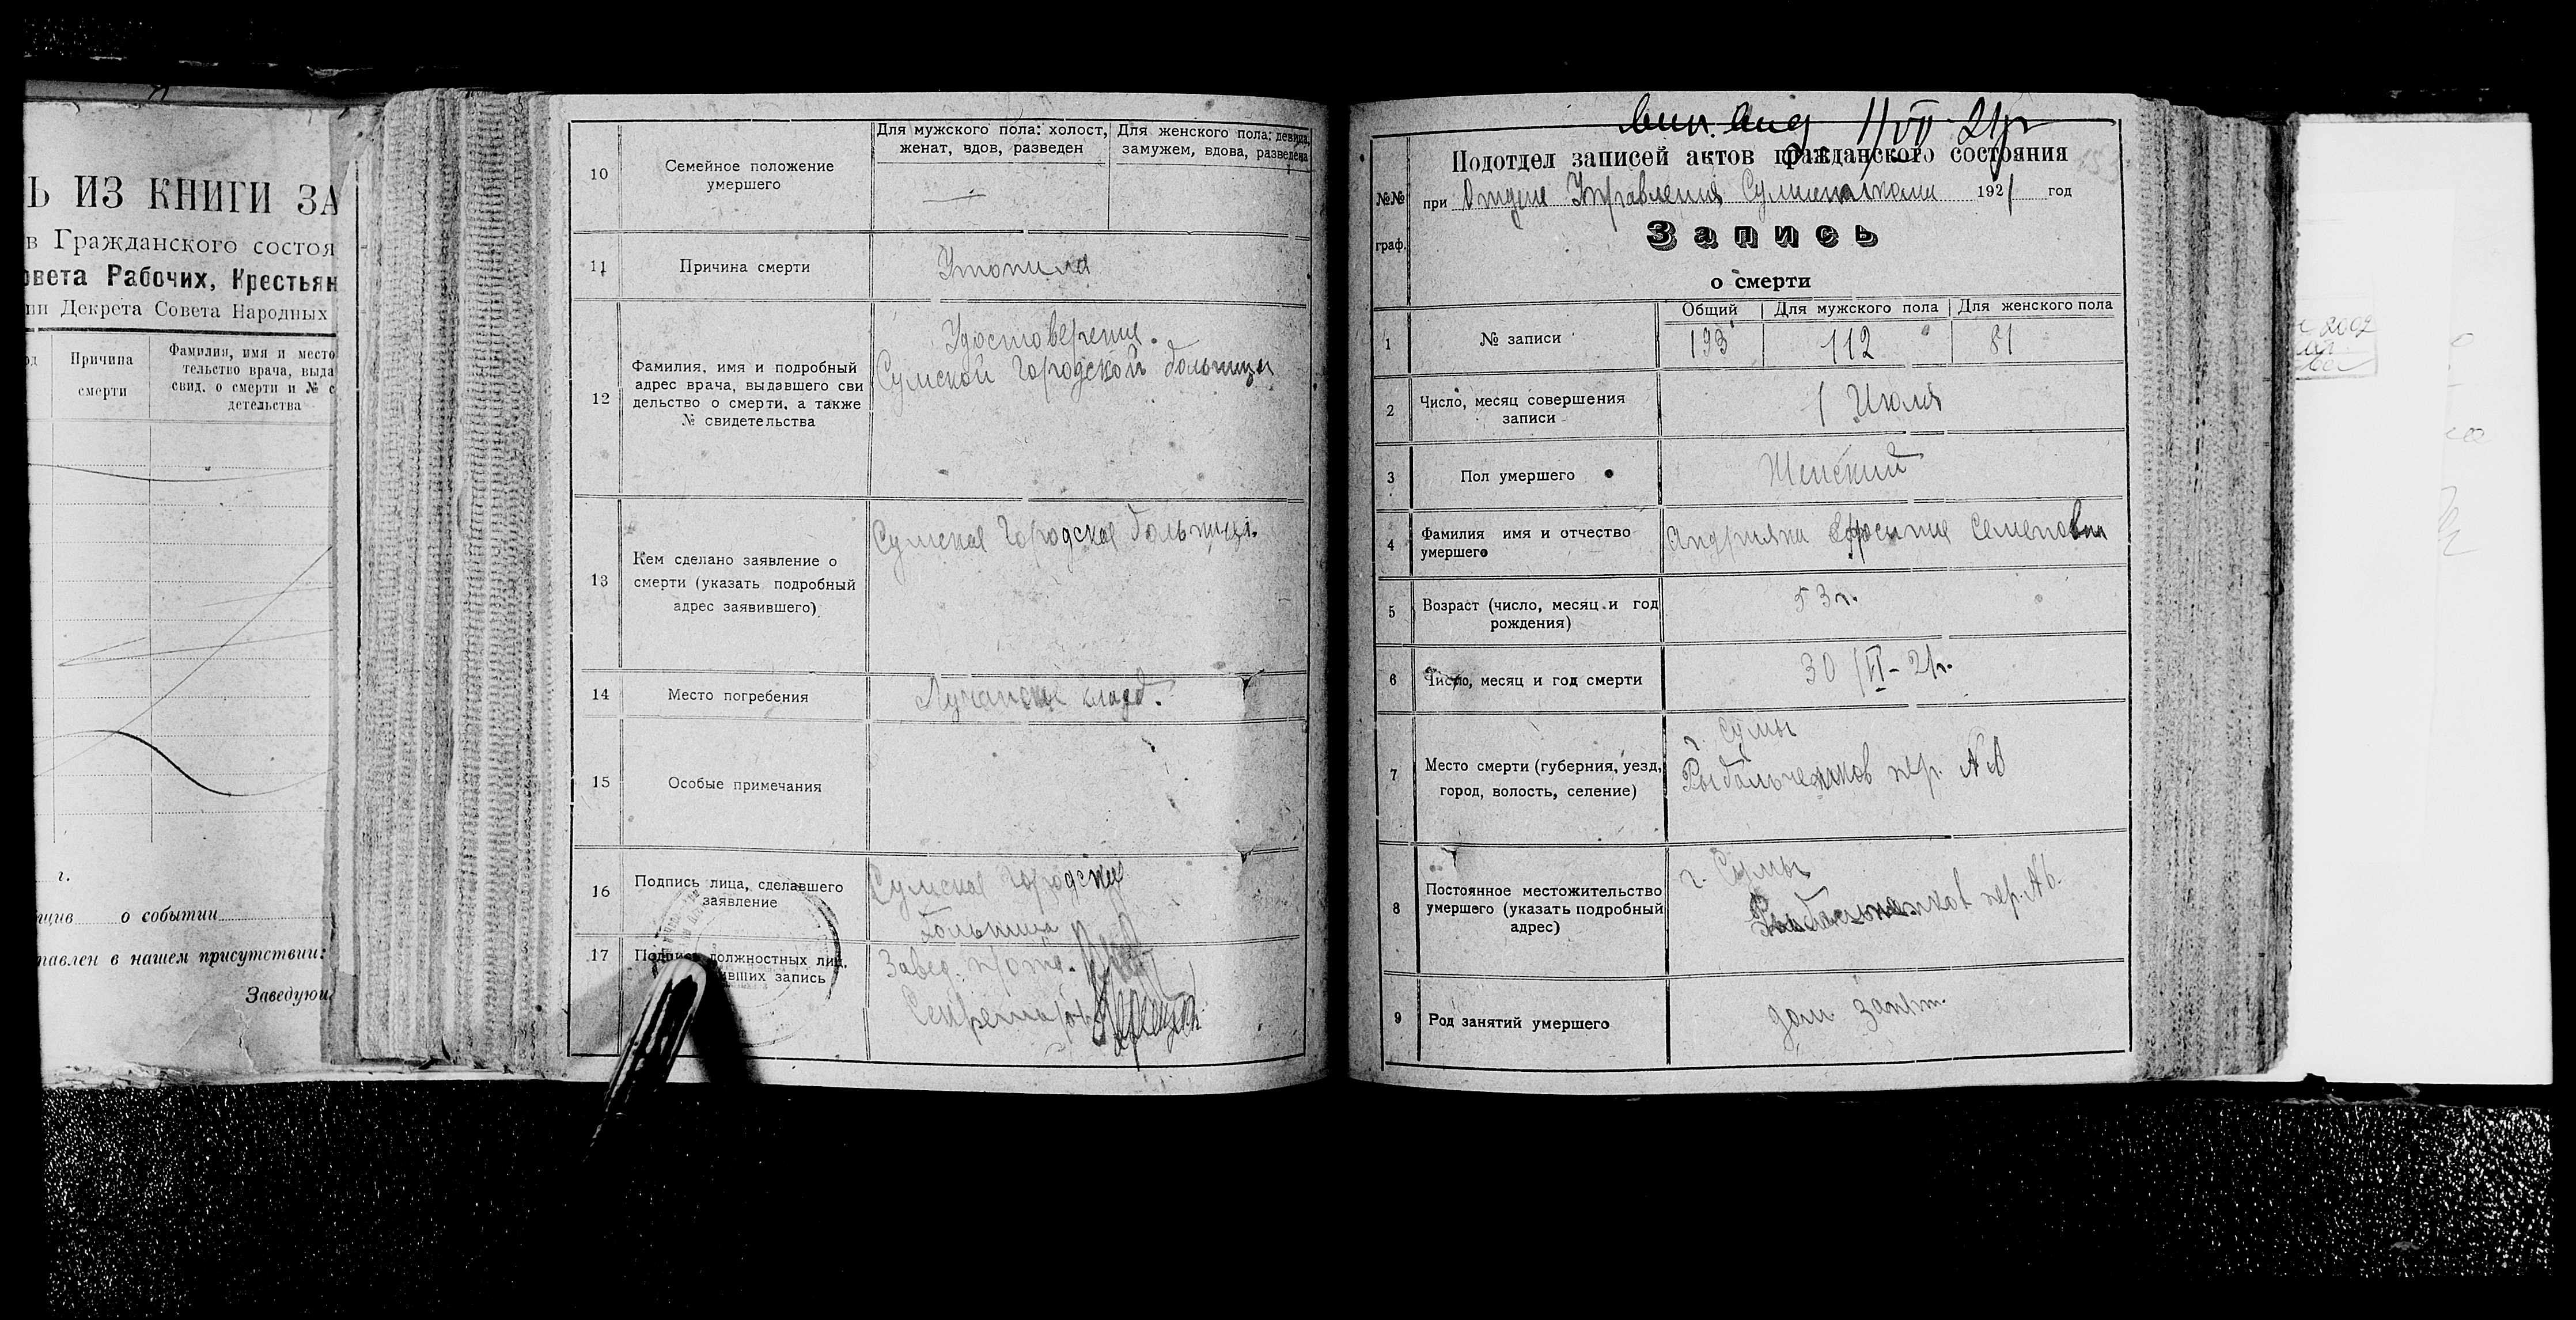 Ь ИЗ КНИГИ ЗА
в Гражданского состоя
овета Рабочих, Крестьян
ии Декрета Совета Народных
од
Причина
смерти
Фамилия, имя и место
тельство врача, выда
свид. о смерти и № с
детельства
г.
щив о событии
тавлен в нашем присутствии:
Заведующ
10
Семейное положение
умершего
Для мужского пола: холост,
женат, вдов, разведен
Для женского пола: девица,
замужем, вдова, разведена
11
Причина смерти
12
Фамилия, имя и подробный
адрес врача, выдавшего сви
дельство о смерти, а также
№ свидетельства
Удостоверение
Сумской Городской больницы
13
Кем сделано заявление о
смерти (указать подробный
адрес заявившего)
Сумская Городская больница.
14
Место погребения
кладб.
15
Особые примечания
16
Подпись лица, сделавшего
заявление
Сумская Городская
больница
17
Подпись должностных лиц,
ивших запись
Завед. п/отд.
Секретарь
11/VII 21г
№№
граф.
Подотдел записей актов гражданского состояния
при Отделе Управления 1921 год
Запись
о смерти
1
№ записи
Общий
Для мужского пола
Для женского пола
193
112
81
2
Число, месяц совершения
записи
1 Июля
3
Пол умершего
Женский
4
Фамилия имя и отчество
умершего
Ефросиния Семеновна
5
Возраст (число, месяц и год
рождения)
53 г.
6
Число, месяц и год смерти
30/VI-21г.
7
Место смерти (губерния, уезд,
город, волость, селение)
г. Сумы
пер.
8
Постоянное местожительство
умершего (указать подробный
адрес)
г. Сумы
пер.
9
Род занятий умершего
дом. занят.